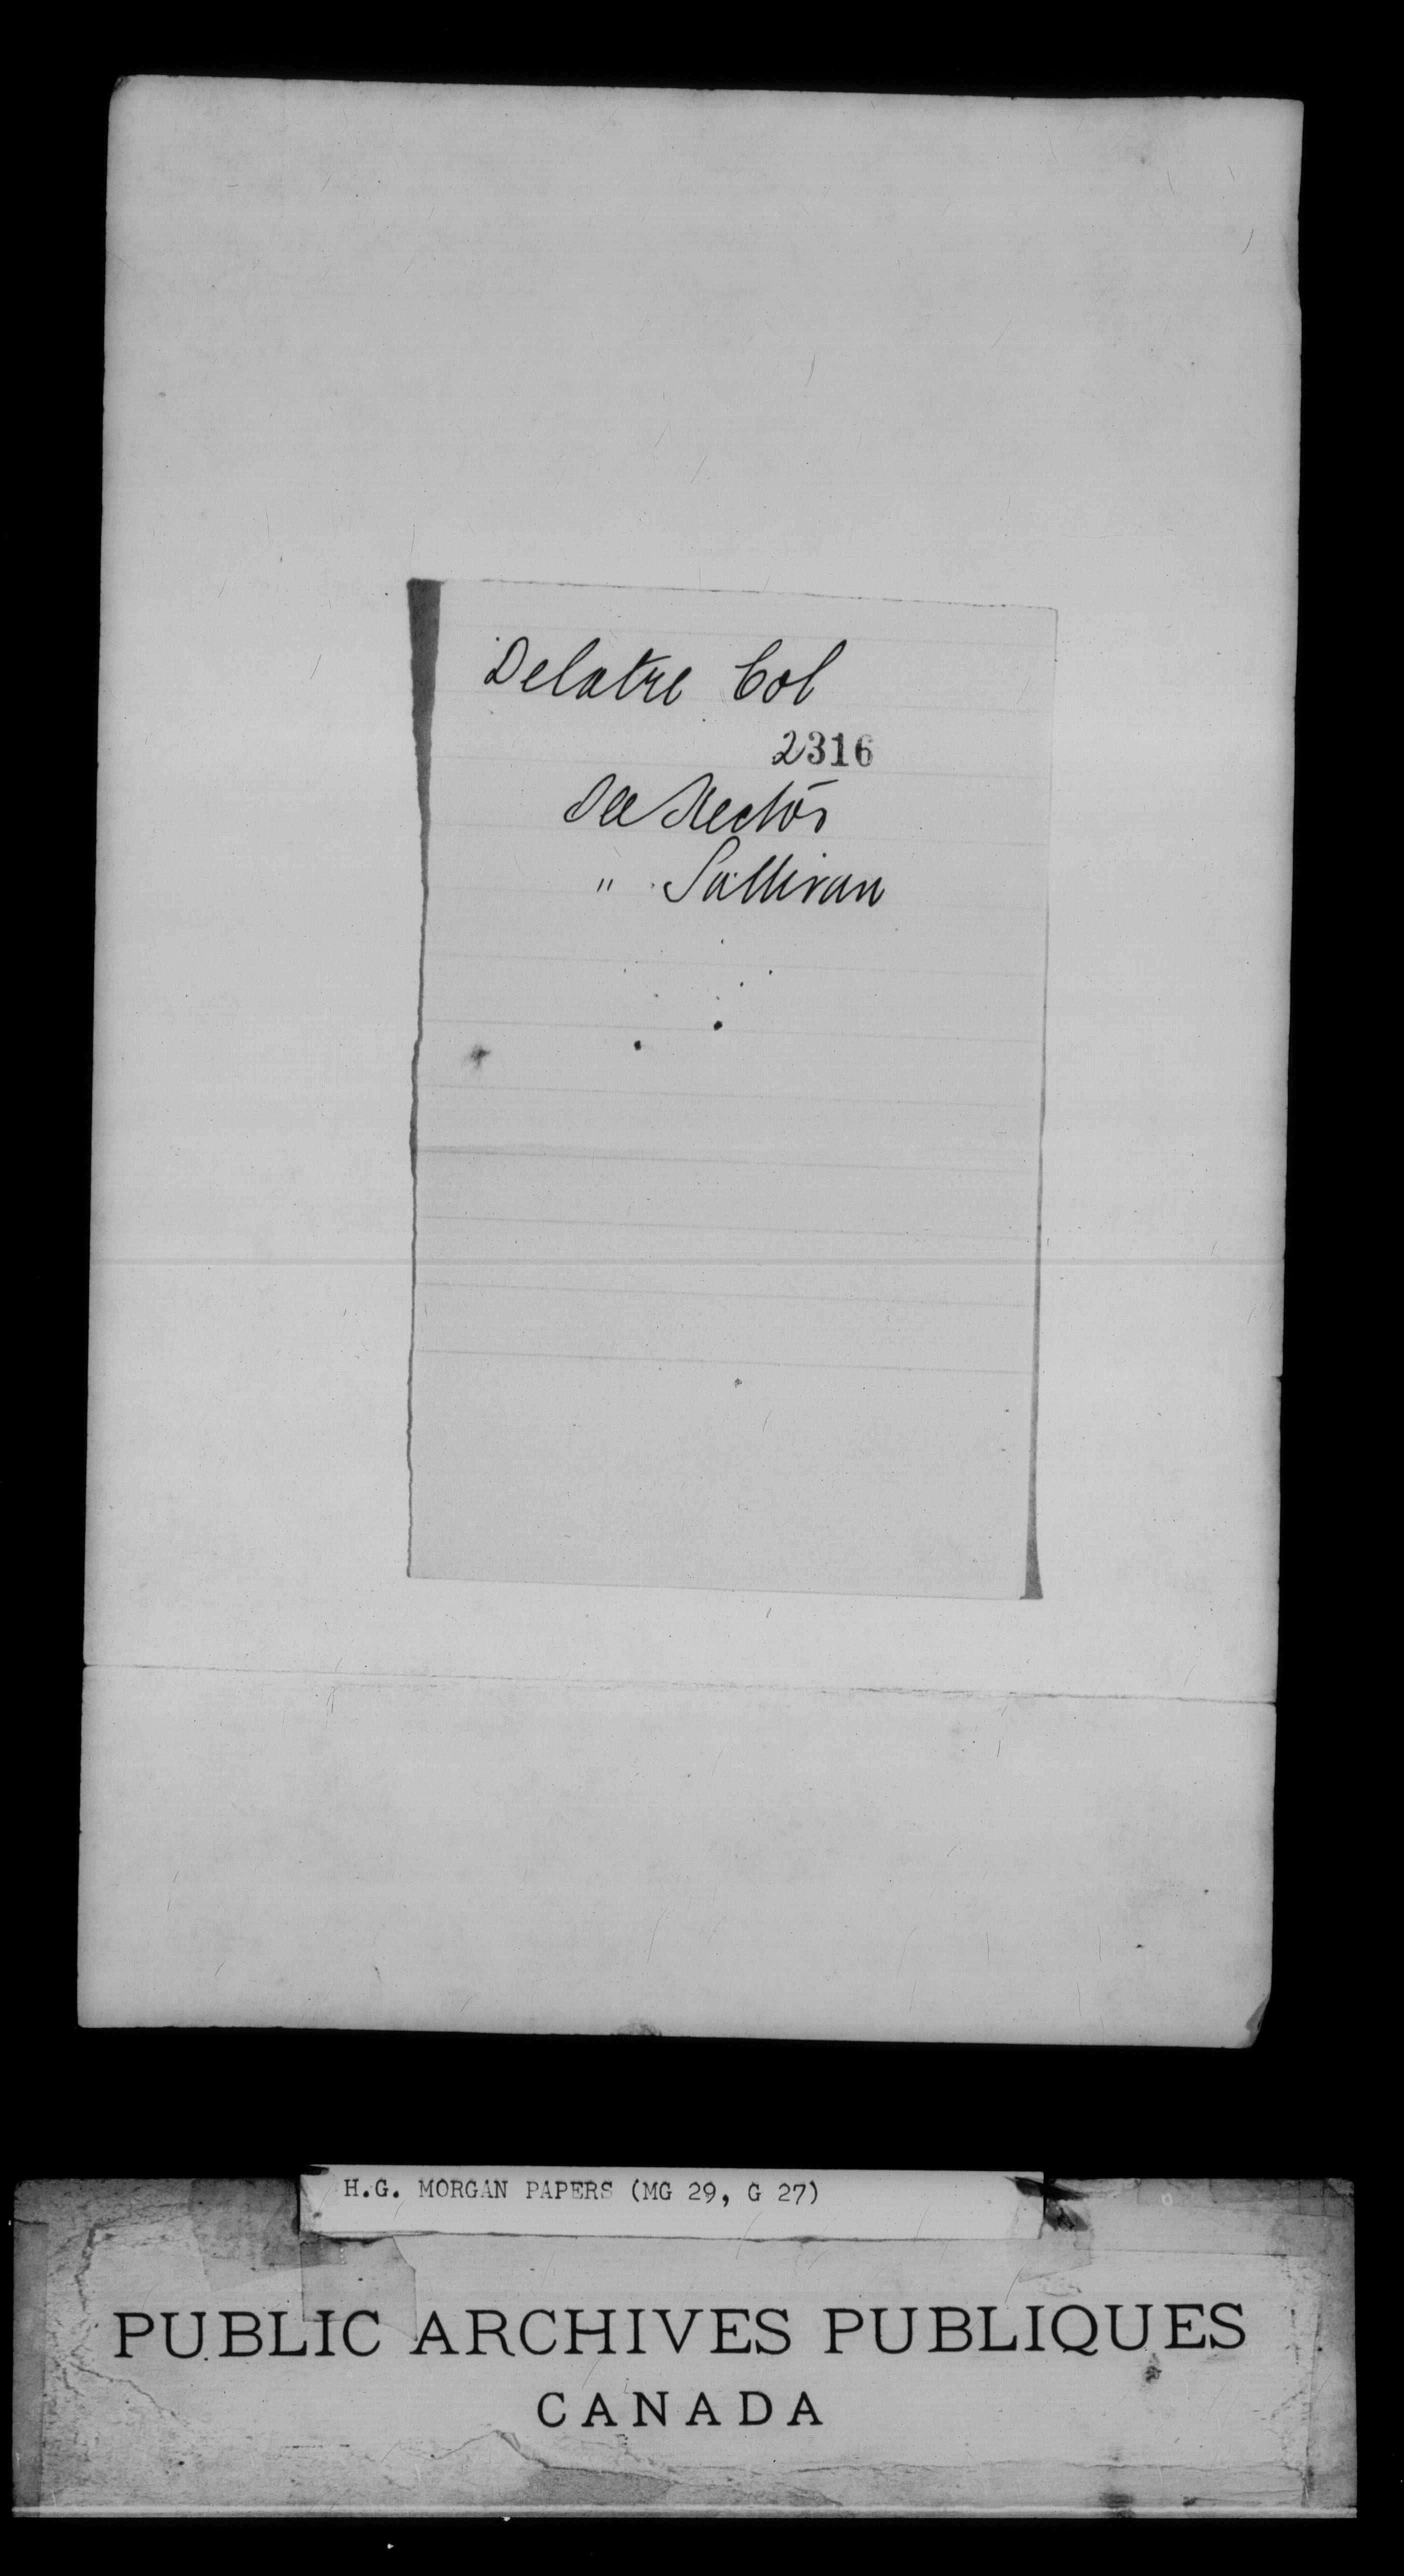 Delatre Col
2316
See Hector
" Sullivan
H.G. MORGAN PAPERS (MG 29, G 27)
PUBLIC ARCHIVES PUBLIQUES
CANADA